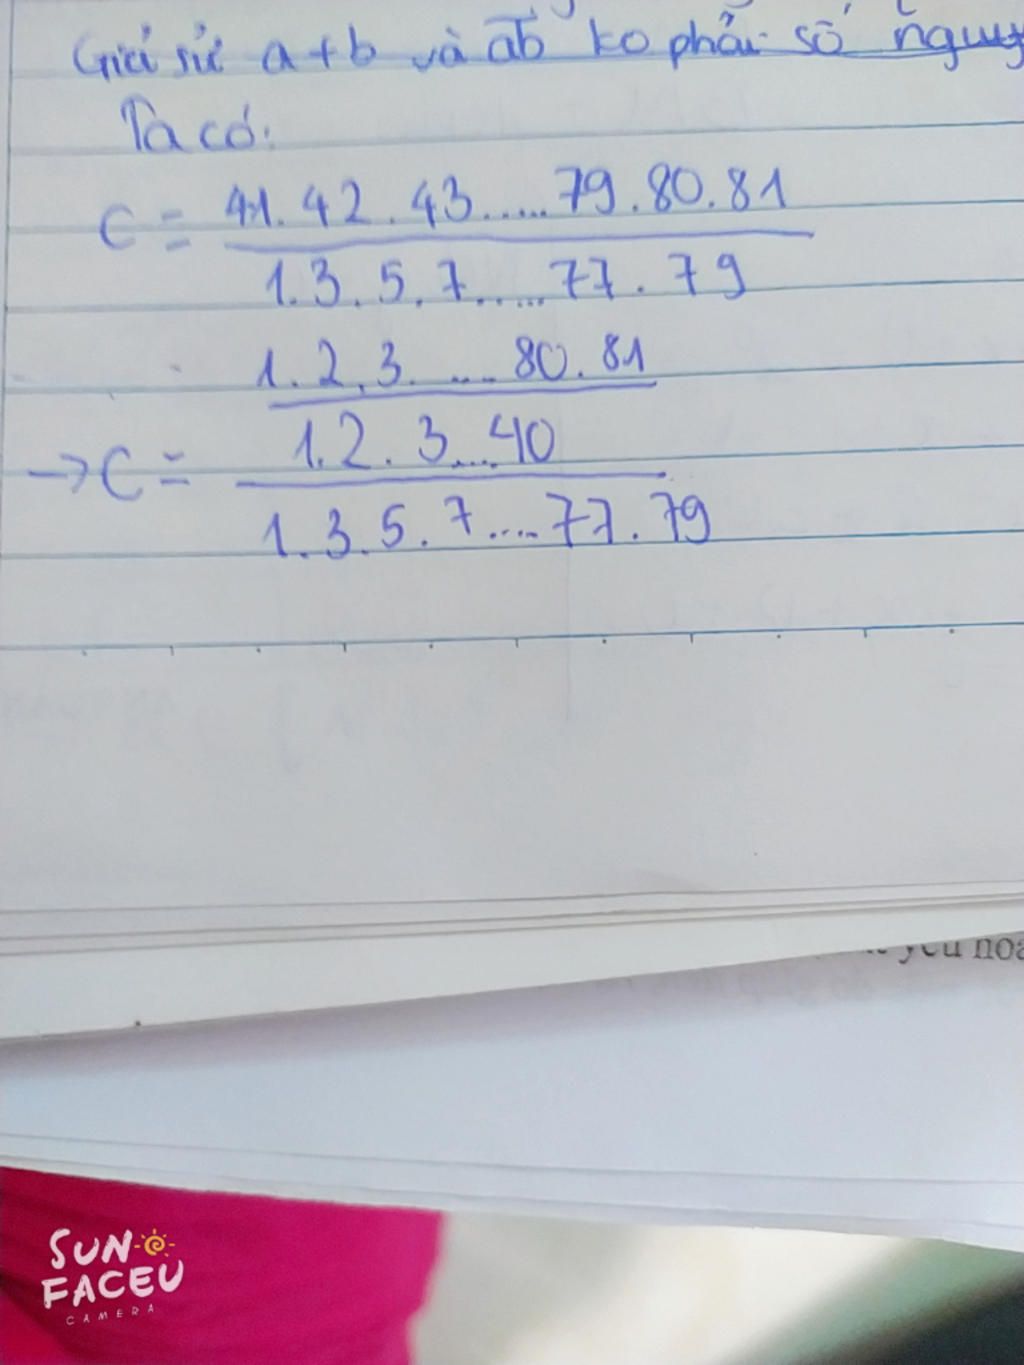 Giả sử a+b và ab ko phải số nguy
Ta có:
C = 41.42.43.....79.80.81
1.3.5.7.....77.79
1.2.3.....80.81
→C = 1.2.3...40
1.3.5.7....77.79
yếu
SUN
FACEU
CAMERA